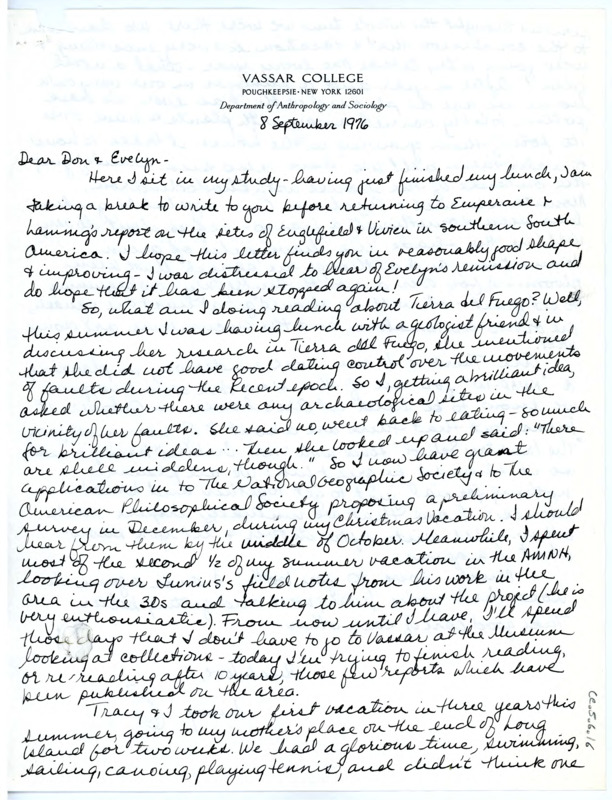 VASSAR COLLEGE
POUGHKEEPSIE · NEW YORK 12601
Department of Anthropology and Sociology
8 September 1976
Dear Don & Evelyn -
Here I sit in my study - having just finished my lunch, I am
taking a break to write to you before returning to Emperaire &
Laming's report on the sites of Englefield & Vivien in southern South
America. I hope this letter finds you in reasonably good shape
& improving - I was distressed to hear of Evelyn's remission and
do hope that it has been stopped again!
So, what am I doing reading about Tierra del Fuego? Well,
this summer I was having lunch with a geologist friend & in
discussing her research in Tierra del Fuego, she mentioned
that she did not have good dating control over the movements
of faults during the Recent epoch. So I, getting a brilliant idea,
asked whether there were any archaeological sites in the
vicinity of her faults. She said no, went back to eating - so much
for brilliant ideas... Then she looked up and said: "There
are shell middens, though." So I now have grant
applications in to The National Geographic Society & to The
American Philosophical Society proposing a preliminary
survey in December, during my Christmas vacation. I should
hear from them by the middle of October. Meanwhile, I spent
most of the second ½ of my summer vacation in the AMNH,
looking over Junius's field notes from his work in the
area in the 30s and talking to him about the project (he is
very enthousiastic). From now until I leave, I'll spend
those days that I don't have to go to Vassar at the Museum
looking at collections - today I'm trying to finish reading,
or re-reading after 10 years, those few reports which have
been published on the area.
Tracy & I took our first vacation in three years this
summer, going to my mother's place on the end of Long
Island for two weeks. We had a glorious time, swimming,
sailing, canoing, playing tennis, and didn't think one